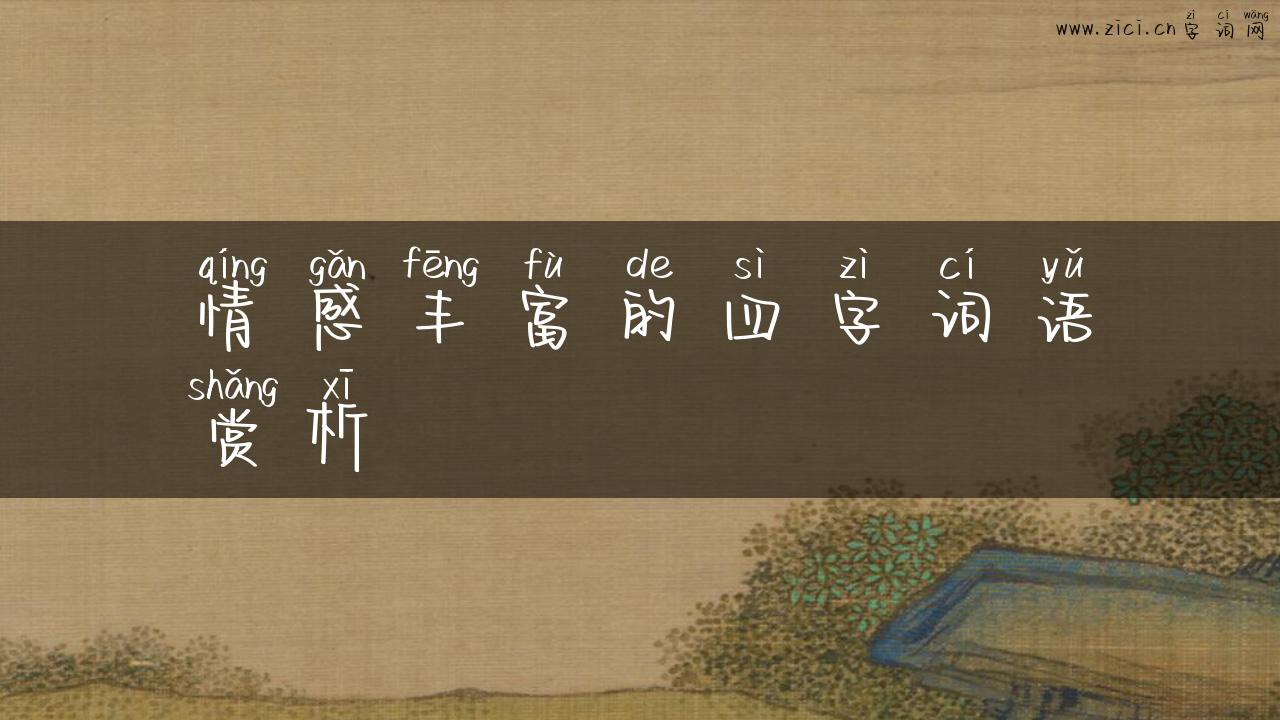 zì cí wǎng
www.zici.cn 字词网
qíng gǎn fēng fù de sì zì cí yǔ
情感丰富的四字词语
shǎng xī
赏析